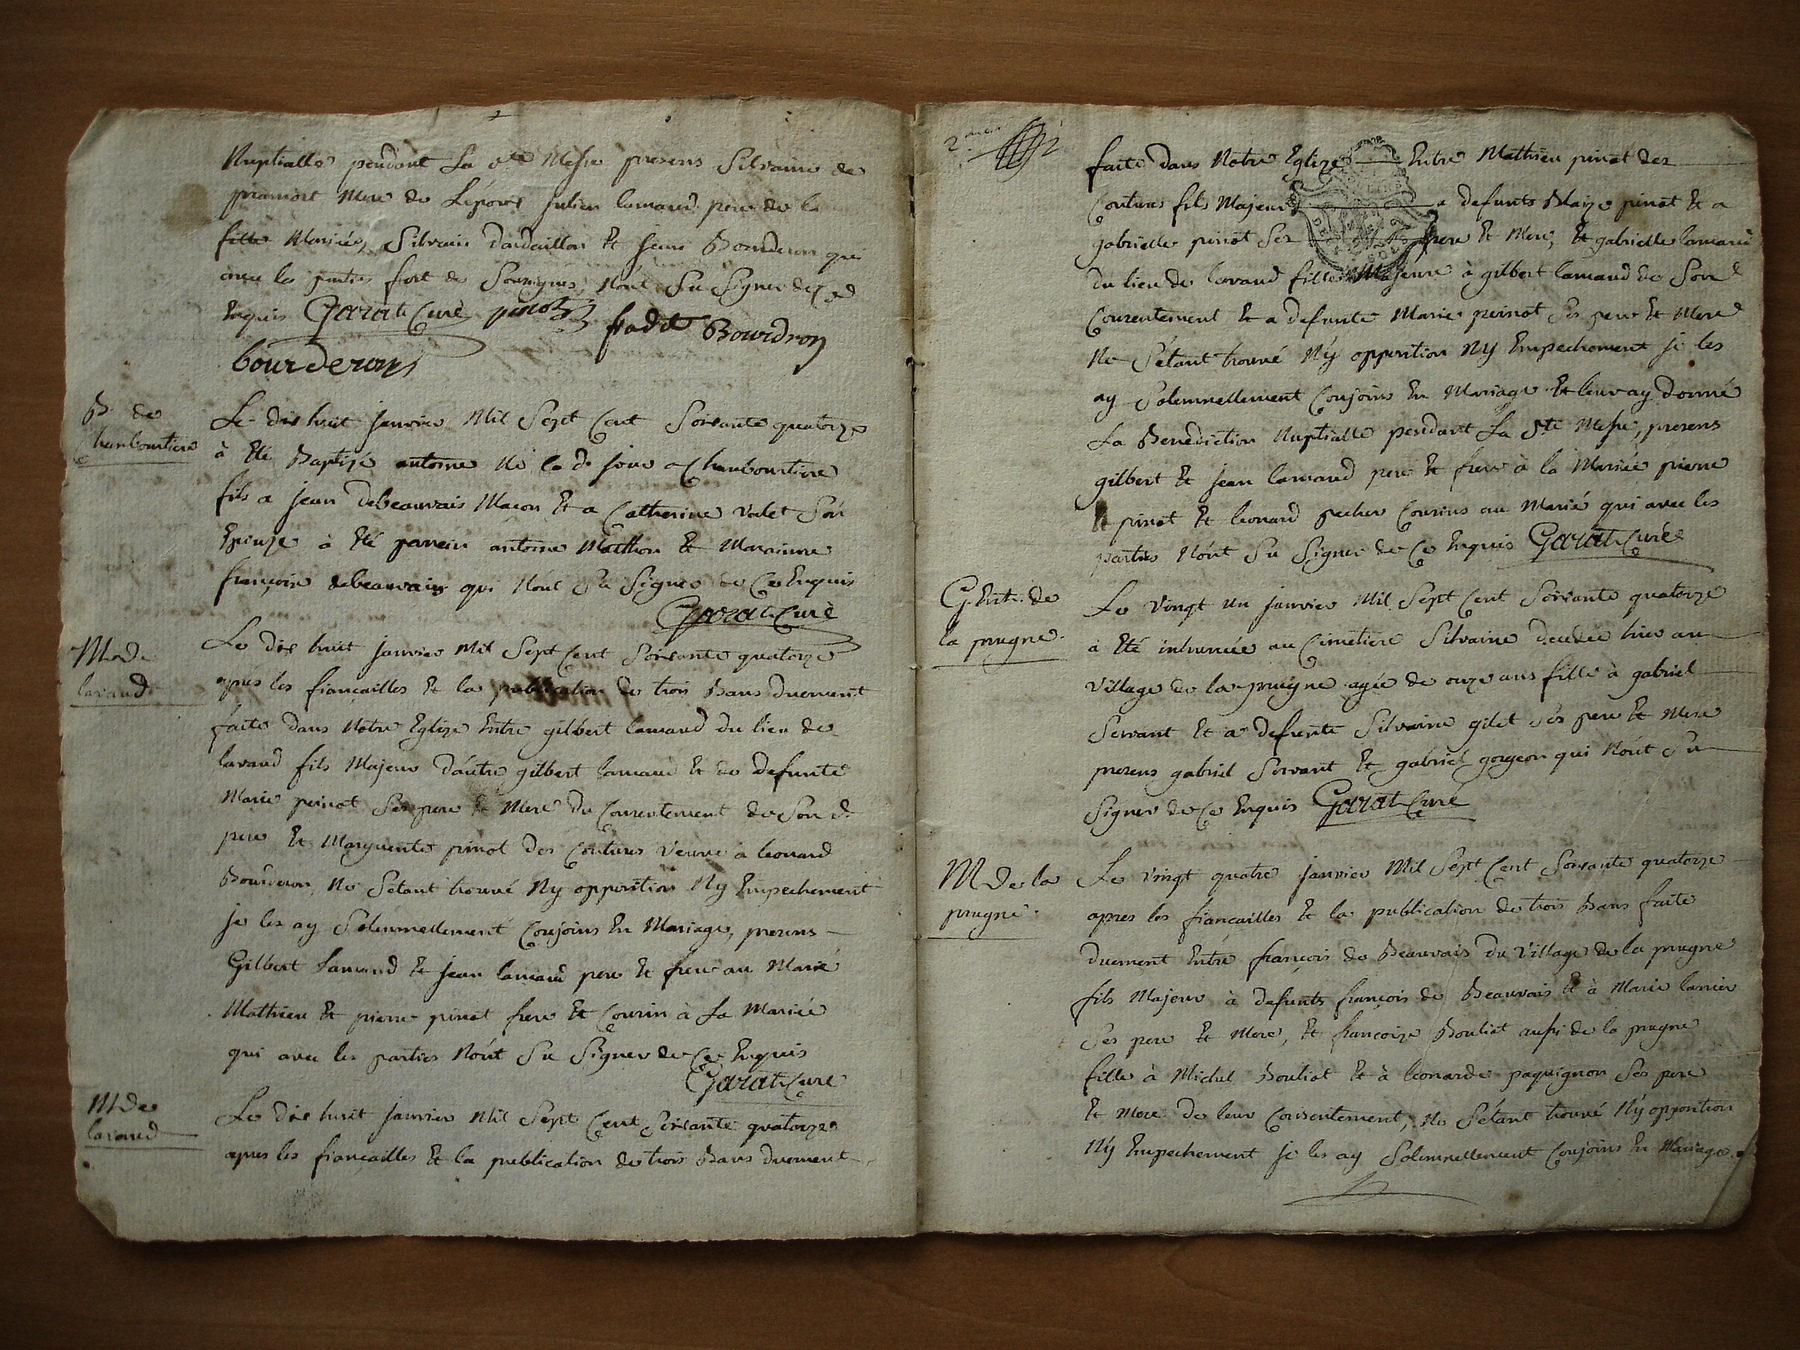 Nuptialle pendant La ste Messe presens Silvaine de
mere de Lépouse julien lamaud pere de la
fille Mariée, Silvain dardaillon Et jean Bourderon qui
avec les parties fort de Nont Su Signer de ce
Enquis Garat Curé pinot fradet Bourdron
bourderons
B. de
Chambourtiere
Le dix huit janvier Mil Sept Cent Soixante quatorze
à Eté Baptizé antoine Né le d. jour a Chambourtiere
fils a jean debeauvais Macon Et a Catherine valet Son
Epouze à Eté parein antoine Mathon Et Maraine
françoise debeauvais qui Nont Su Signer de Ce Enquis
Garat Curé
M. de
lavaud
Le dix huit janvier Mil Sept Cent Soixante quatorze
apres les fiançailles Et la publication de trois Bans duement
faite dans Notre Eglize Entre gilbert lamaud du lieu de
lavaud fils Majeur dautre gilbert lamaud Et de defunte
Marie peinot Ses pere Et Mere du Consentement de Son d.
pere Et Marguerite pinot des Coutures veuve à leonard
Bourderon Ne Sétant trouvé Ny opposition Ny Empechement
je les ay Solemnellement Conjoins En Mariage, presens
Gilbert Lamaud Et jean lamaud pere Et frere au Marié
Mathieu Et pierre pinot frere Et Cousin à La Mariée
qui avec les parties Nont Su Signer de Ce Enquis
Garat Curé
M. de
lavaud
Le dix huit janvier Mil Sept Cent Soixante quatorze
apres les fiançailles Et la publication de trois Bans duement
2
faite dans Notre Eglize Entre Mathieu pinot des
Coutures fils Majeur a defunts Blaize pinot Et a
gabrielle pinot Ses pere Et Mere, Et gabrielle lamaud
du lieu de lavaud fille Majeure à gilbert lamaud de Son
Consentement Et a defunte Marie peinot Ses pere Et Mere
Ne Sétant trouvé Ny opposition Ny Empechement je les
ay Solemnellement Conjoins En Mariage Et leur ay donné
La Benediction Nuptialle pendant La Ste Messe, presens
gilbert Et jean lamaud pere Et frere à la Mariée pierre
pinot Et leonard pecher Cousins au Marié qui avec les
parties Nont Su Signer de Ce Enquis Garat Curé
G. Ent. de
la prugne.
Le vingt un janvier Mil Sept Cent Soixante quatorze
à Eté inhumée au Cimetiere Silvaine decedée hier au
village de la prugne agée de onze ans fille à gabriel
Servant Et a defunte Silvaine gilet Ses pere Et Mere
presens gabriel Servant Et gabriel gorgeon qui Nont Su
Signer de Ce Enquis Garat Curé
M. de la
prugne.
Le vingt quatre janvier Mil Sept Cent Soixante quatorze
apres les fiancailles Et la publication de trois Bans faite
duement Entre françois de Beauvais du village de la prugne
fils Majeur à defunts françois de Beauvais Et à Marie lanier
Ses pere Et Mere, Et françoize Bouliot aussi de la prugne
fille à Michel Bouliot Et à leonarde paquignon Ses pere
Et Mere de leur Consentement, Ne Sétant trouvé Ny opposition
Ny Empechement je les ay Solemnellement Conjoins En Mariage.